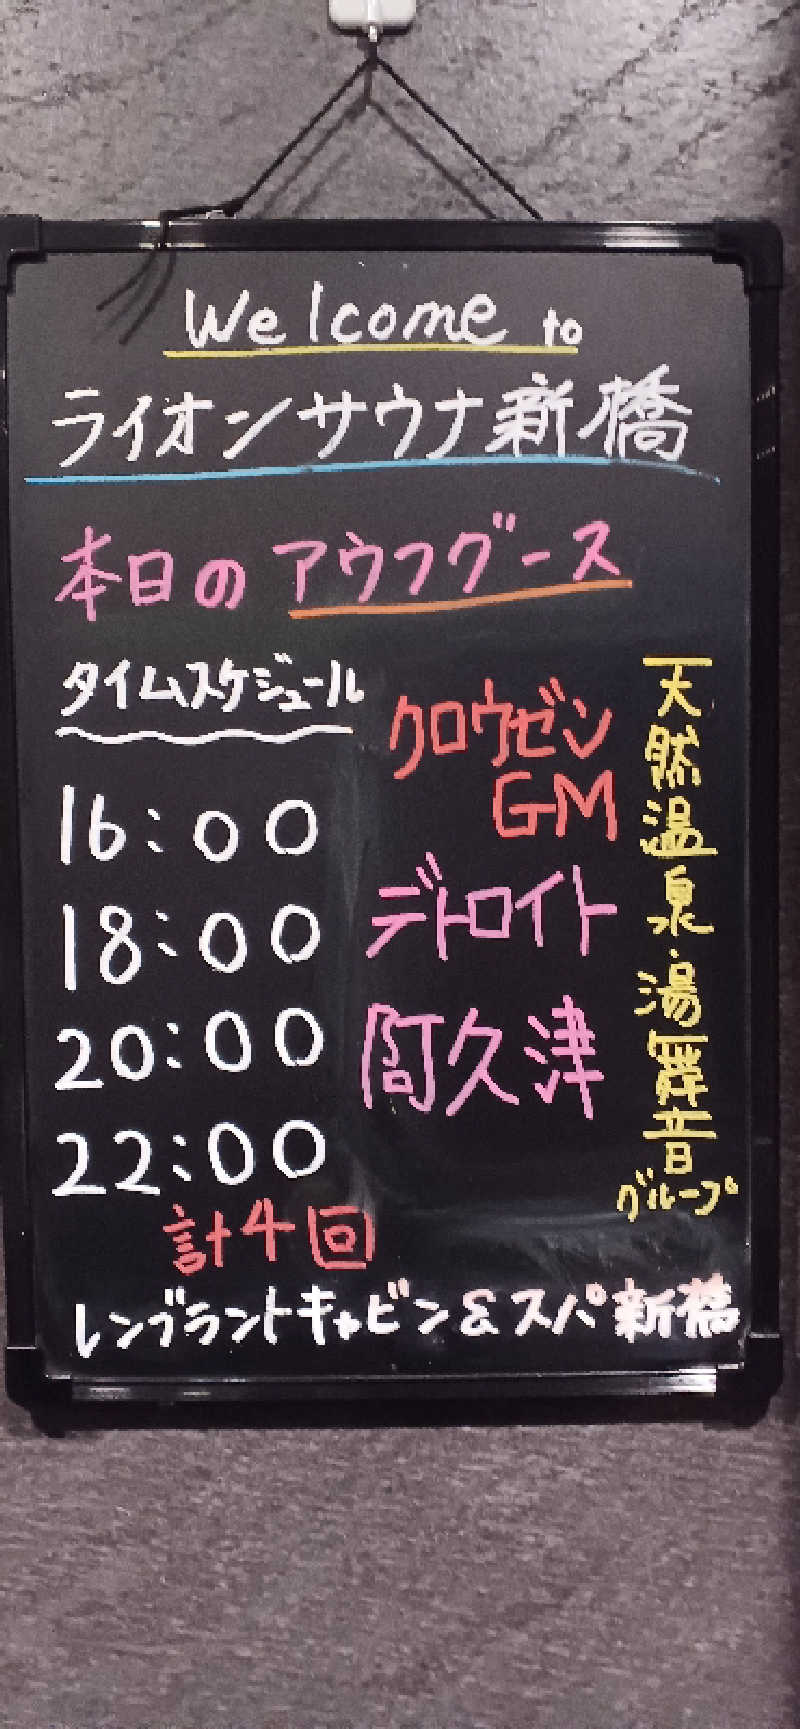 Welcome to
ライオンサウナ新橋
本日のアウフグース
タイムスケジュール
16:00
18:00
20:00
22:00
計4回
クロウゼン
GM
デトロイト
阿久津
天然温泉・湯舞音
グループ
レンブラントキャビン&スパ新橋